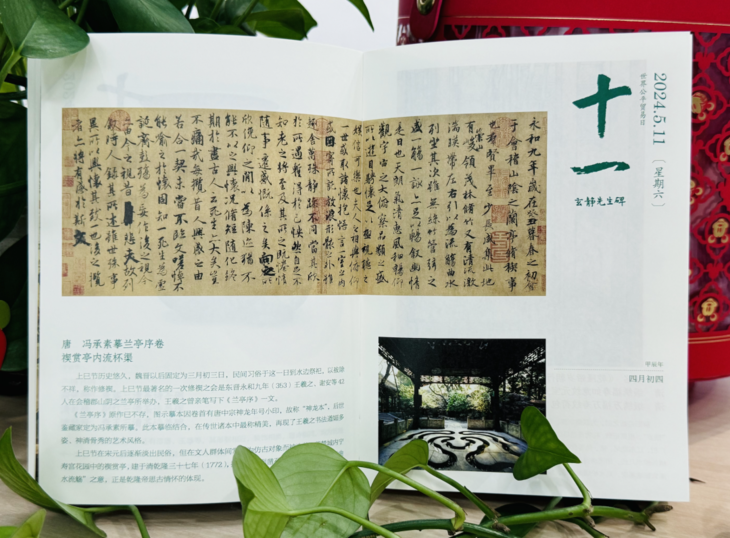 永和九年歲在癸丑暮春之初會
于會稽山陰之蘭亭脩禊事
也群賢畢至少長咸集此地
有崇山峻領茂林脩竹又有清流激
湍映帶左右引以為流觴曲水
列坐其次雖無絲竹管弦之
盛一觴一詠亦足以暢敘幽情
是日也天朗氣清惠風和暢仰
觀宇宙之大俯察品類之盛
所以遊目騁懷足以極視聽之
娛信可樂也夫人之相與俯仰
一世或取諸懷抱悟言一室之內
或因寄所託放浪形骸之外雖
趣舍萬殊靜躁不同當其欣
於所遇暫得於己怏然自足不
知老之將至及其所之既惓情
隨事遷感慨係之矣向之所
欣俛仰之間以為陳迹猶不
能不以之興懷況脩短隨化終
期於盡古人云死生亦大矣豈
不痛哉每攬昔人興感之由
若合一契未嘗不臨文嗟悼不
能喻之於懷固知一死生為虛
誕齊彭殤為妄作後之視今
亦由今之視昔悲夫故列
敘時人錄其所述雖世殊事
異所以興懷其致一也後之攬
者亦將有感於斯文
唐 冯承素摹兰亭序卷
禊赏亭内流杯渠
上巳节的史悠久，魏晋以后固定为三月初三日，民间习俗于这一日到水边祭祀，以祓除
不祥，称作修禊。上巳节最著名的一次修禊之会是东晋永和九年（353）王羲之、谢安等42
人在会稽郡山阴之兰亭所举办，王羲之曾亲笔写下《兰亭序》一文。
《兰亭序》原作已不存，图示摹本因卷首有唐中宗神龙年号小印，故称“神龙本”，后经
鉴藏家定为冯承素所摹，此本摹临结合，在传世诸本中最称精美，再现了王羲之书法遒媚多
姿、神清骨秀的艺术风格。
上巳节在宋元后逐渐淡出民俗，但在文人群体间 仿古对象 内宁
寿宫花园中的禊赏亭，建于清乾隆三十七年（1772）
水流觞”之意，正是乾隆帝思古情怀的体现。
2024.5.11〔星期六〕
世界公平贸易日
十一
玄静先生碑
甲辰年
四月初四